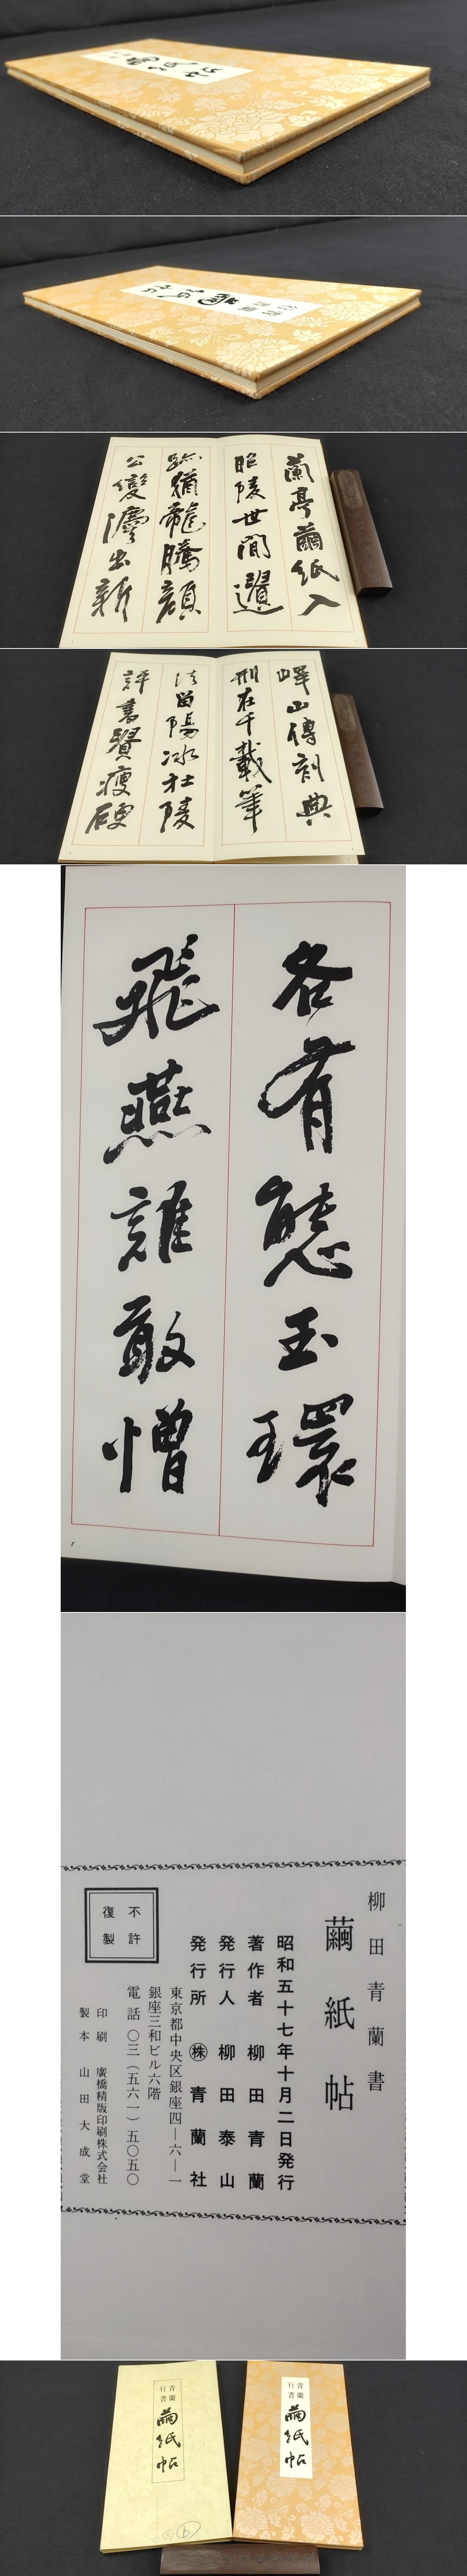 青蘭
行書
繭紙帖
蘭亭繭紙入
昭陵世間遺
跡猶龍騰顏
公變灋出新
嶧山傳刻典
刑在千載筆
法留陽冰杜陵
評書貴瘦硬
各有態玉環
飛燕誰敢憎
柳田青蘭書
繭紙帖
昭和五十七年十月二日発行
著作者 柳田青蘭
発行人 柳田泰山
発行所 ㈱青蘭社
東京都中央区銀座四―六―一
銀座三和ビル六階
電話 〇三(五六一)五〇五〇
印刷 廣橋精版印刷株式会社
製本 山田大成堂
不許
復製
青蘭
行書
繭紙帖
青蘭
行書
繭紙帖